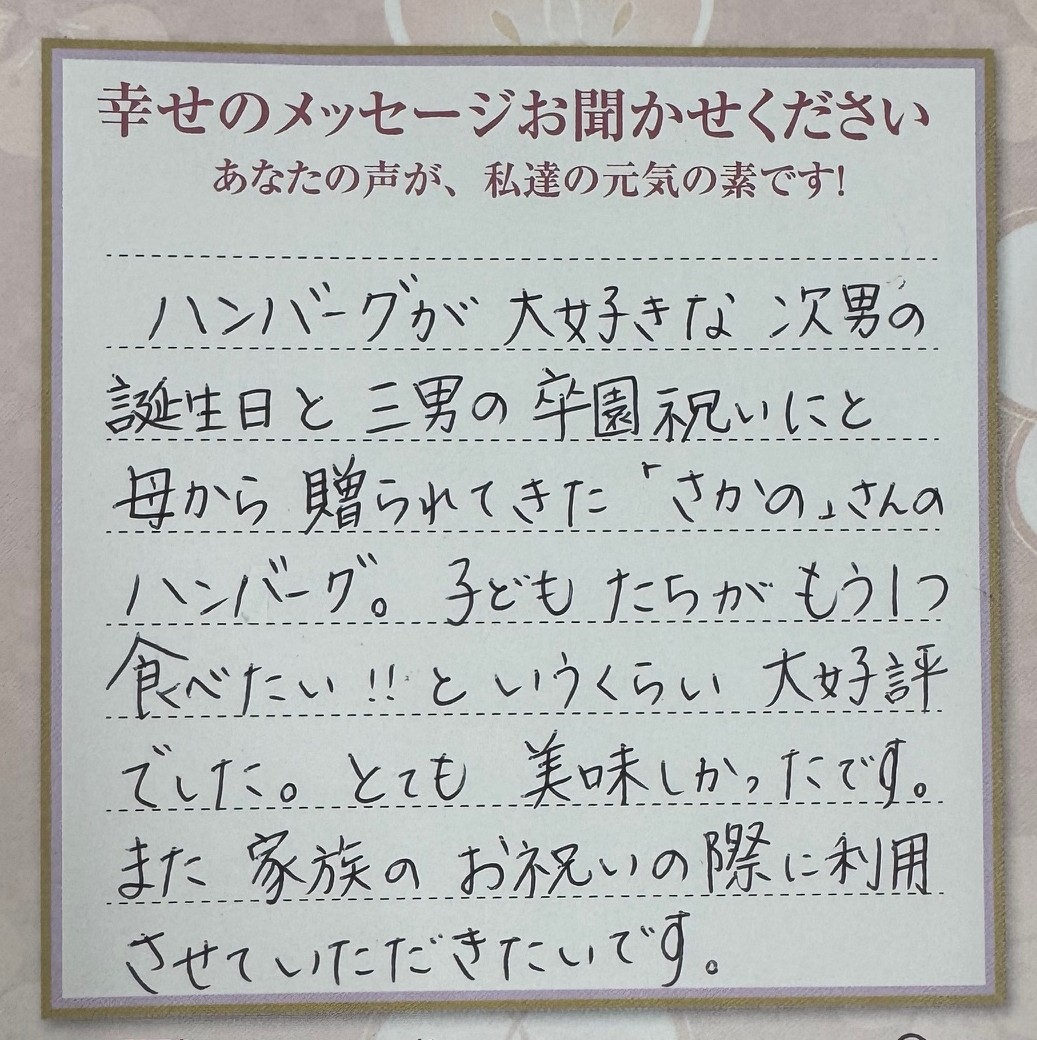 幸せのメッセージお聞かせください
あなたの声が、私達の元気の素です!
ハンバーグが大好きな次男の
誕生日と三男の卒園祝いにと
母から贈られてきた「さかの」さんの
ハンバーグ。子どもたちがもう1つ
食べたい!!というくらい大好評
でした。とても美味しかったです。
また家族のお祝いの際に利用
させていただきたいです。